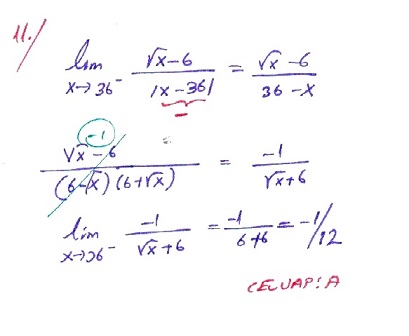 11./
lim x→36⁻ √x-6 / |x-36| = √x -6 / 36-x
-
-1
√x - 6 / (6-√x)(6+√x) = -1 / √x+6
lim x→36⁻ -1 / √x+6 = -1 / 6+6 = -1/12
CEVAP: A